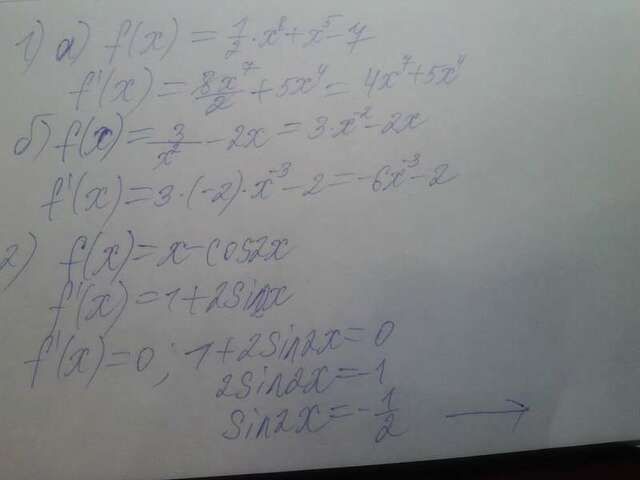 1) а) f(x) = 1/2 · x⁸ + x⁵ - 7
f'(x) = 8x⁷/2 + 5x⁴ = 4x⁷ + 5x⁴
б) f(x) = 3/x² - 2x = 3·x⁻² - 2x
f'(x) = 3·(-2)·x⁻³ - 2 = -6x⁻³ - 2
2) f(x) = x - cos2x
f'(x) = 1 + 2sin2x
f'(x) = 0; 1 + 2sin2x = 0
2sin2x = -1
sin2x = -1/2 →